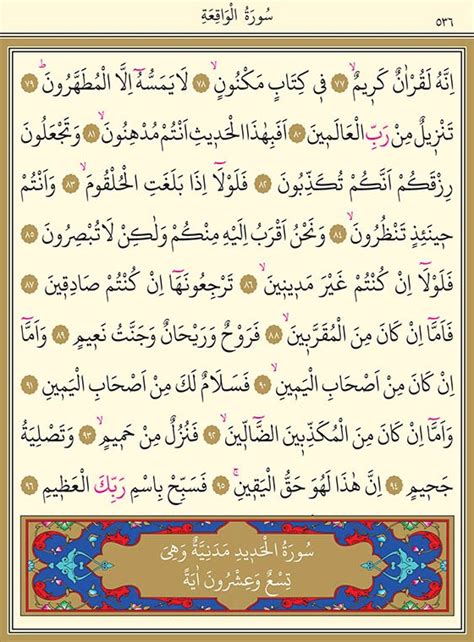 سُورَةُ الْوَاقِعَةِ
٥٣٦
اِنَّهُ لَقُرْاٰنٌ كَر۪يمٌۙ ﴿٧٧﴾ ف۪ي كِتَابٍ مَكْنُونٍۙ ﴿٧٨﴾ لَا يَمَسُّهُٓ اِلَّا الْمُطَهَّرُونَۜ ﴿٧٩﴾
تَنْز۪يلٌ مِنْ رَبِّ الْعَالَم۪ينَ ﴿٨٠﴾ اَفَبِهٰذَا الْحَد۪يثِ اَنْتُمْ مُدْهِنُونَۙ ﴿٨١﴾ وَتَجْعَلُونَ
رِزْقَكُمْ اَنَّكُمْ تُكَذِّبُونَ ﴿٨٢﴾ فَلَوْلَٓا اِذَا بَلَغَتِ الْحُلْقُومَۙ ﴿٨٣﴾ وَاَنْتُمْ
ح۪ينَئِذٍ تَنْظُرُونَۙ ﴿٨٤﴾ وَنَحْنُ اَقْرَبُ اِلَيْهِ مِنْكُمْ وَلٰكِنْ لَا تُبْصِرُونَ ﴿٨٥﴾
فَلَوْلَٓا اِنْ كُنْتُمْ غَيْرَ مَد۪ين۪ينَۙ ﴿٨٦﴾ تَرْجِعُونَهَٓا اِنْ كُنْتُمْ صَادِق۪ينَ ﴿٨٧﴾
فَاَمَّٓا اِنْ كَانَ مِنَ الْمُقَرَّب۪ينَۙ ﴿٨٨﴾ فَرَوْحٌ وَرَيْحَانٌ وَجَنَّتُ نَع۪يمٍ ﴿٨٩﴾ وَاَمَّٓا
اِنْ كَانَ مِنْ اَصْحَابِ الْيَم۪ينِۙ ﴿٩٠﴾ فَسَلَامٌ لَكَ مِنْ اَصْحَابِ الْيَم۪ينِ ﴿٩١﴾
وَاَمَّٓا اِنْ كَانَ مِنَ الْمُكَذِّب۪ينَ الضَّٓالّ۪ينَۙ ﴿٩٢﴾ فَنُزُلٌ مِنْ حَم۪يمٍۙ ﴿٩٣﴾ وَتَصْلِيَةُ
جَح۪يمٍ ﴿٩٤﴾ اِنَّ هٰذَا لَهُوَ حَقُّ الْيَق۪ينِۚ ﴿٩٥﴾ فَسَبِّحْ بِاسْمِ رَبِّكَ الْعَظ۪يمِ ﴿٩٦﴾
سُورَةُ الْحَد۪يدِ مَدَنِيَّةٌ وَهِيَ
تِسْعٌ وَعِشْرُونَ اٰيَةً